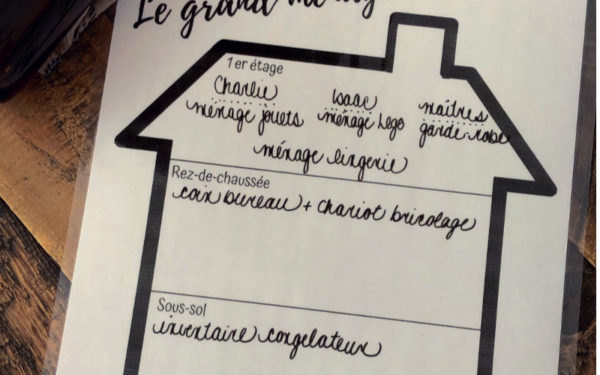 Le grand
1er étage
Charlie
ménage jouets
Isaac
ménage Lego
maîtres
garde-robe
ménage lingerie
Rez-de-chaussée
coin bureau + chariot bricolage
Sous-sol
inventaire congelateur